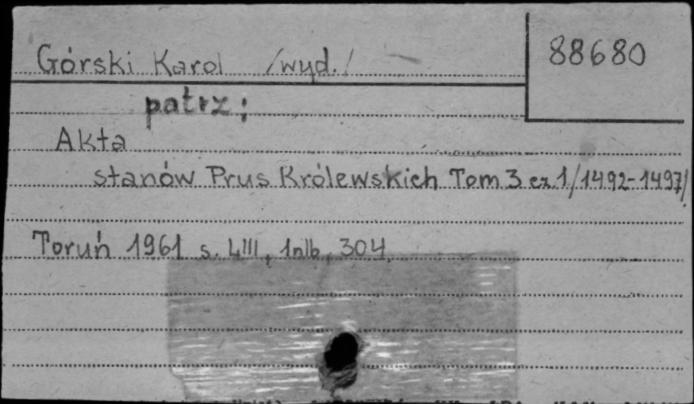 Górski Karol /wyd./
88680
patrz:
Akta
stanów Prus Królewskich Tom 3 cz. 1/1492-1497/
Toruń 1961 s. LIII, 1nlb, 304